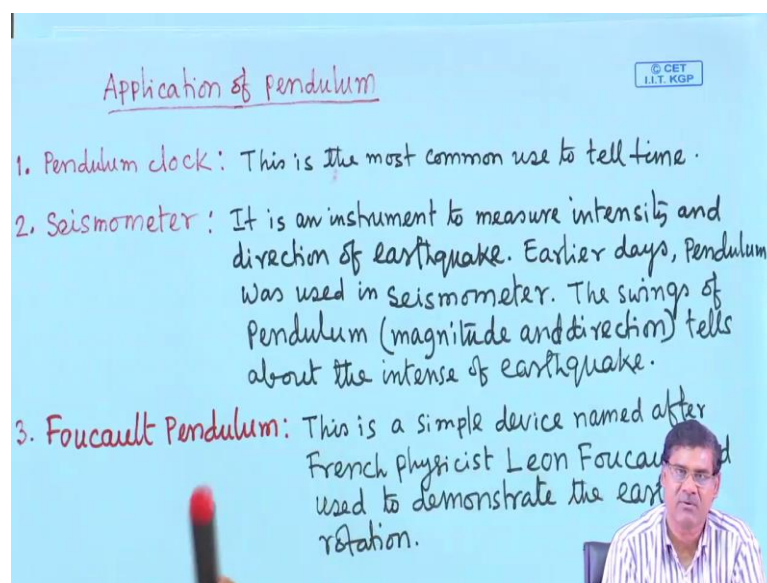 Application of pendulum
© CET
I.I.T. KGP
1. Pendulum clock: This is the most common use to tell time.
2. Seismometer: It is an instrument to measure intensity and
direction of earthquake. Earlier days, Pendulum
was used in seismometer. The swings of
Pendulum (magnitude and direction) tells
about the intense of earthquake.
3. Foucault Pendulum: This is a simple device named after
French physicist Leon
used to demonstrate the
rotation.